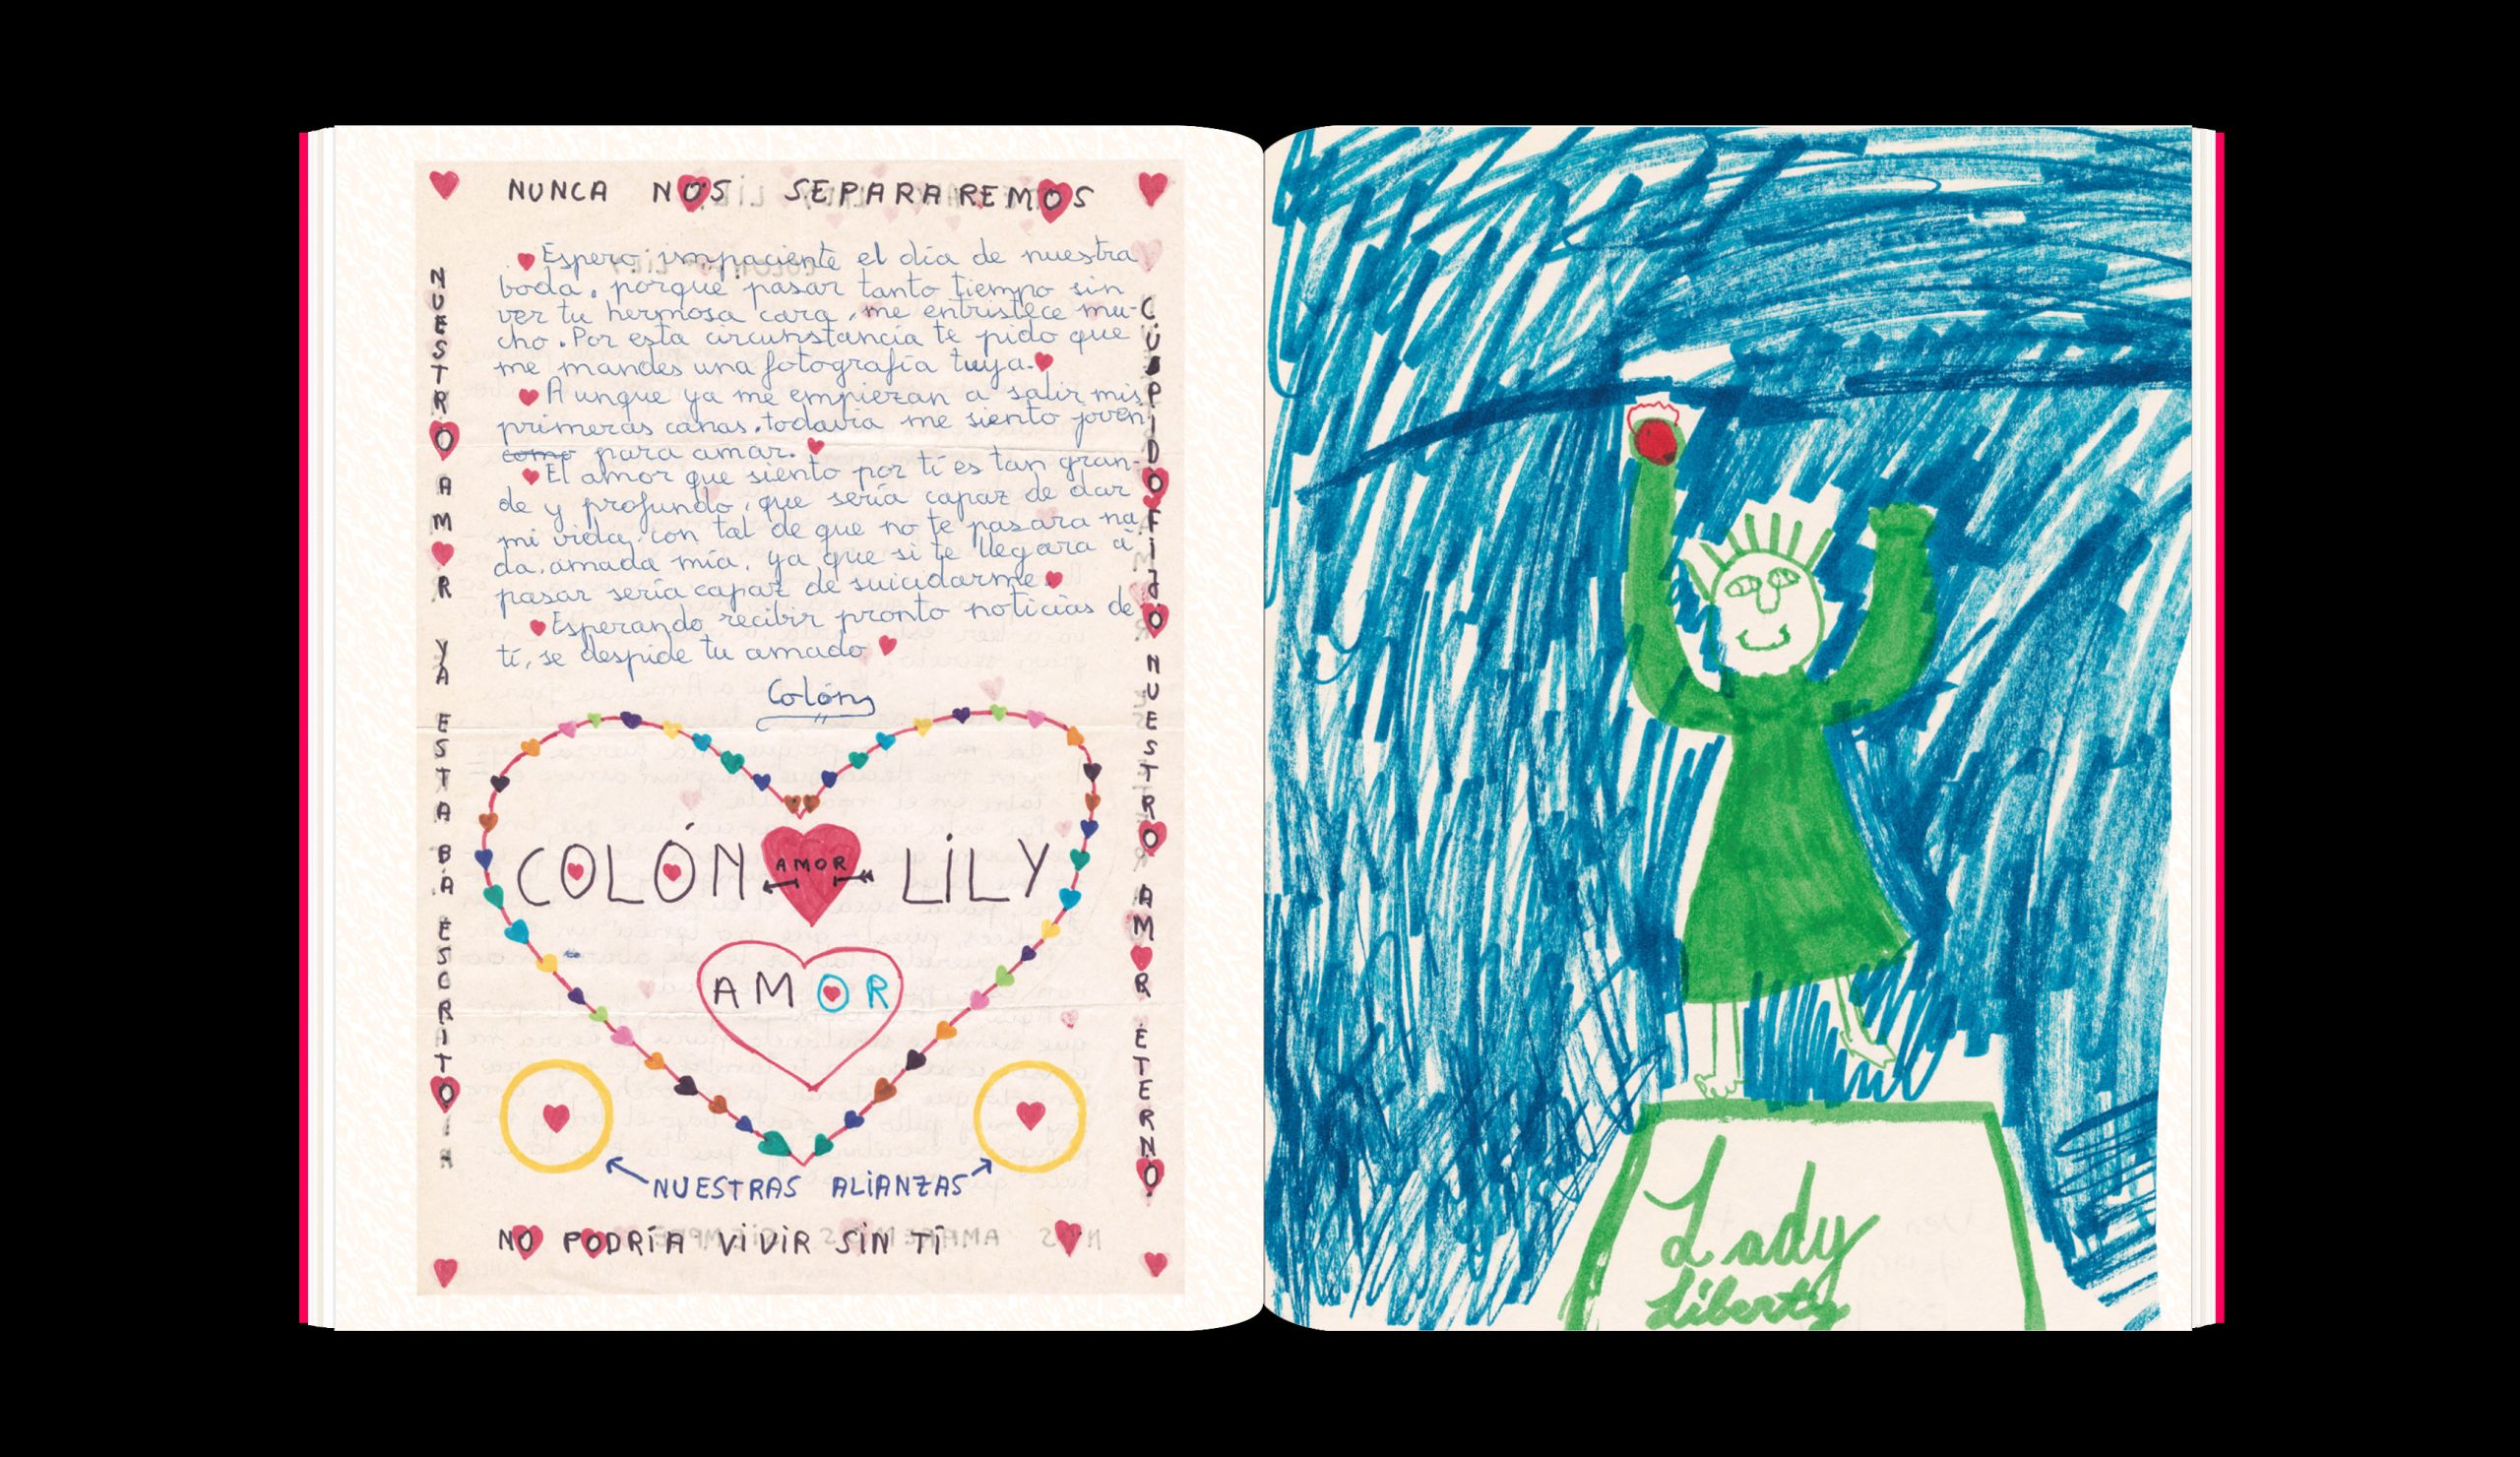 NUNCA NOS SEPARAREMOS
NUESTRO AM♥R YA ESTABA ESCRITO
Espero impaciente el día de nuestra
boda, porque pasar tanto tiempo sin
ver tu hermosa cara, me entristece mu-
cho. Por esta circunstancia te pido que
me mandes una fotografía tuya.
Aunque ya me empiezan a salir mis
primeras canas, todavía me siento joven
para amar.
El amor que siento por tí es tan gran-
de y profundo, que sería capaz de dar
mi vida, con tal de que no te pasara na
da, amada mía, ya que si te llegara a
pasar sería capaz de suicidarme.
Esperando recibir pronto noticias de
tí, se despide tu amado
Colón
CUPIDO FIJÓ NUESTRO AM♥R ETERNO.
COLÓN AMOR LILY
AMOR
NUESTRAS ALIANZAS
NO PODRÍA VIVIR SIN TÍ
Lady
Liberty